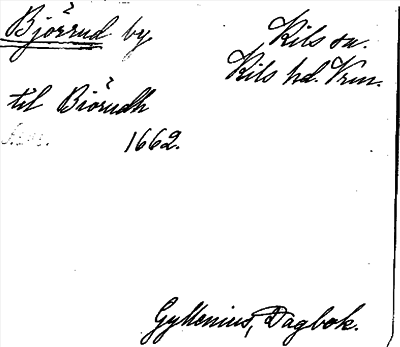 Björrud by
Kils sn.
Kils hd. Vrm.
til Biörudh
1662.
Gyllenius, Dagbok.